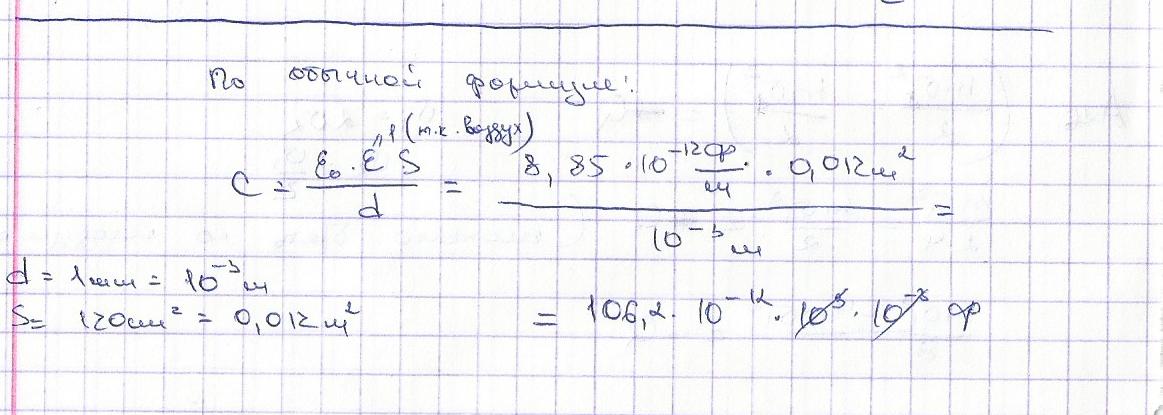 По обычной формуле:
1 (т.к. воздух)
C = ε₀ · ε S / d = 8,85 · 10⁻¹² Ф/м · 0,012 м² / 10⁻³ м =
d = 1мм = 10⁻³ м
S = 120 см² = 0,012 м²
= 106,2 · 10⁻¹² · 10³ · 10⁻³ Ф